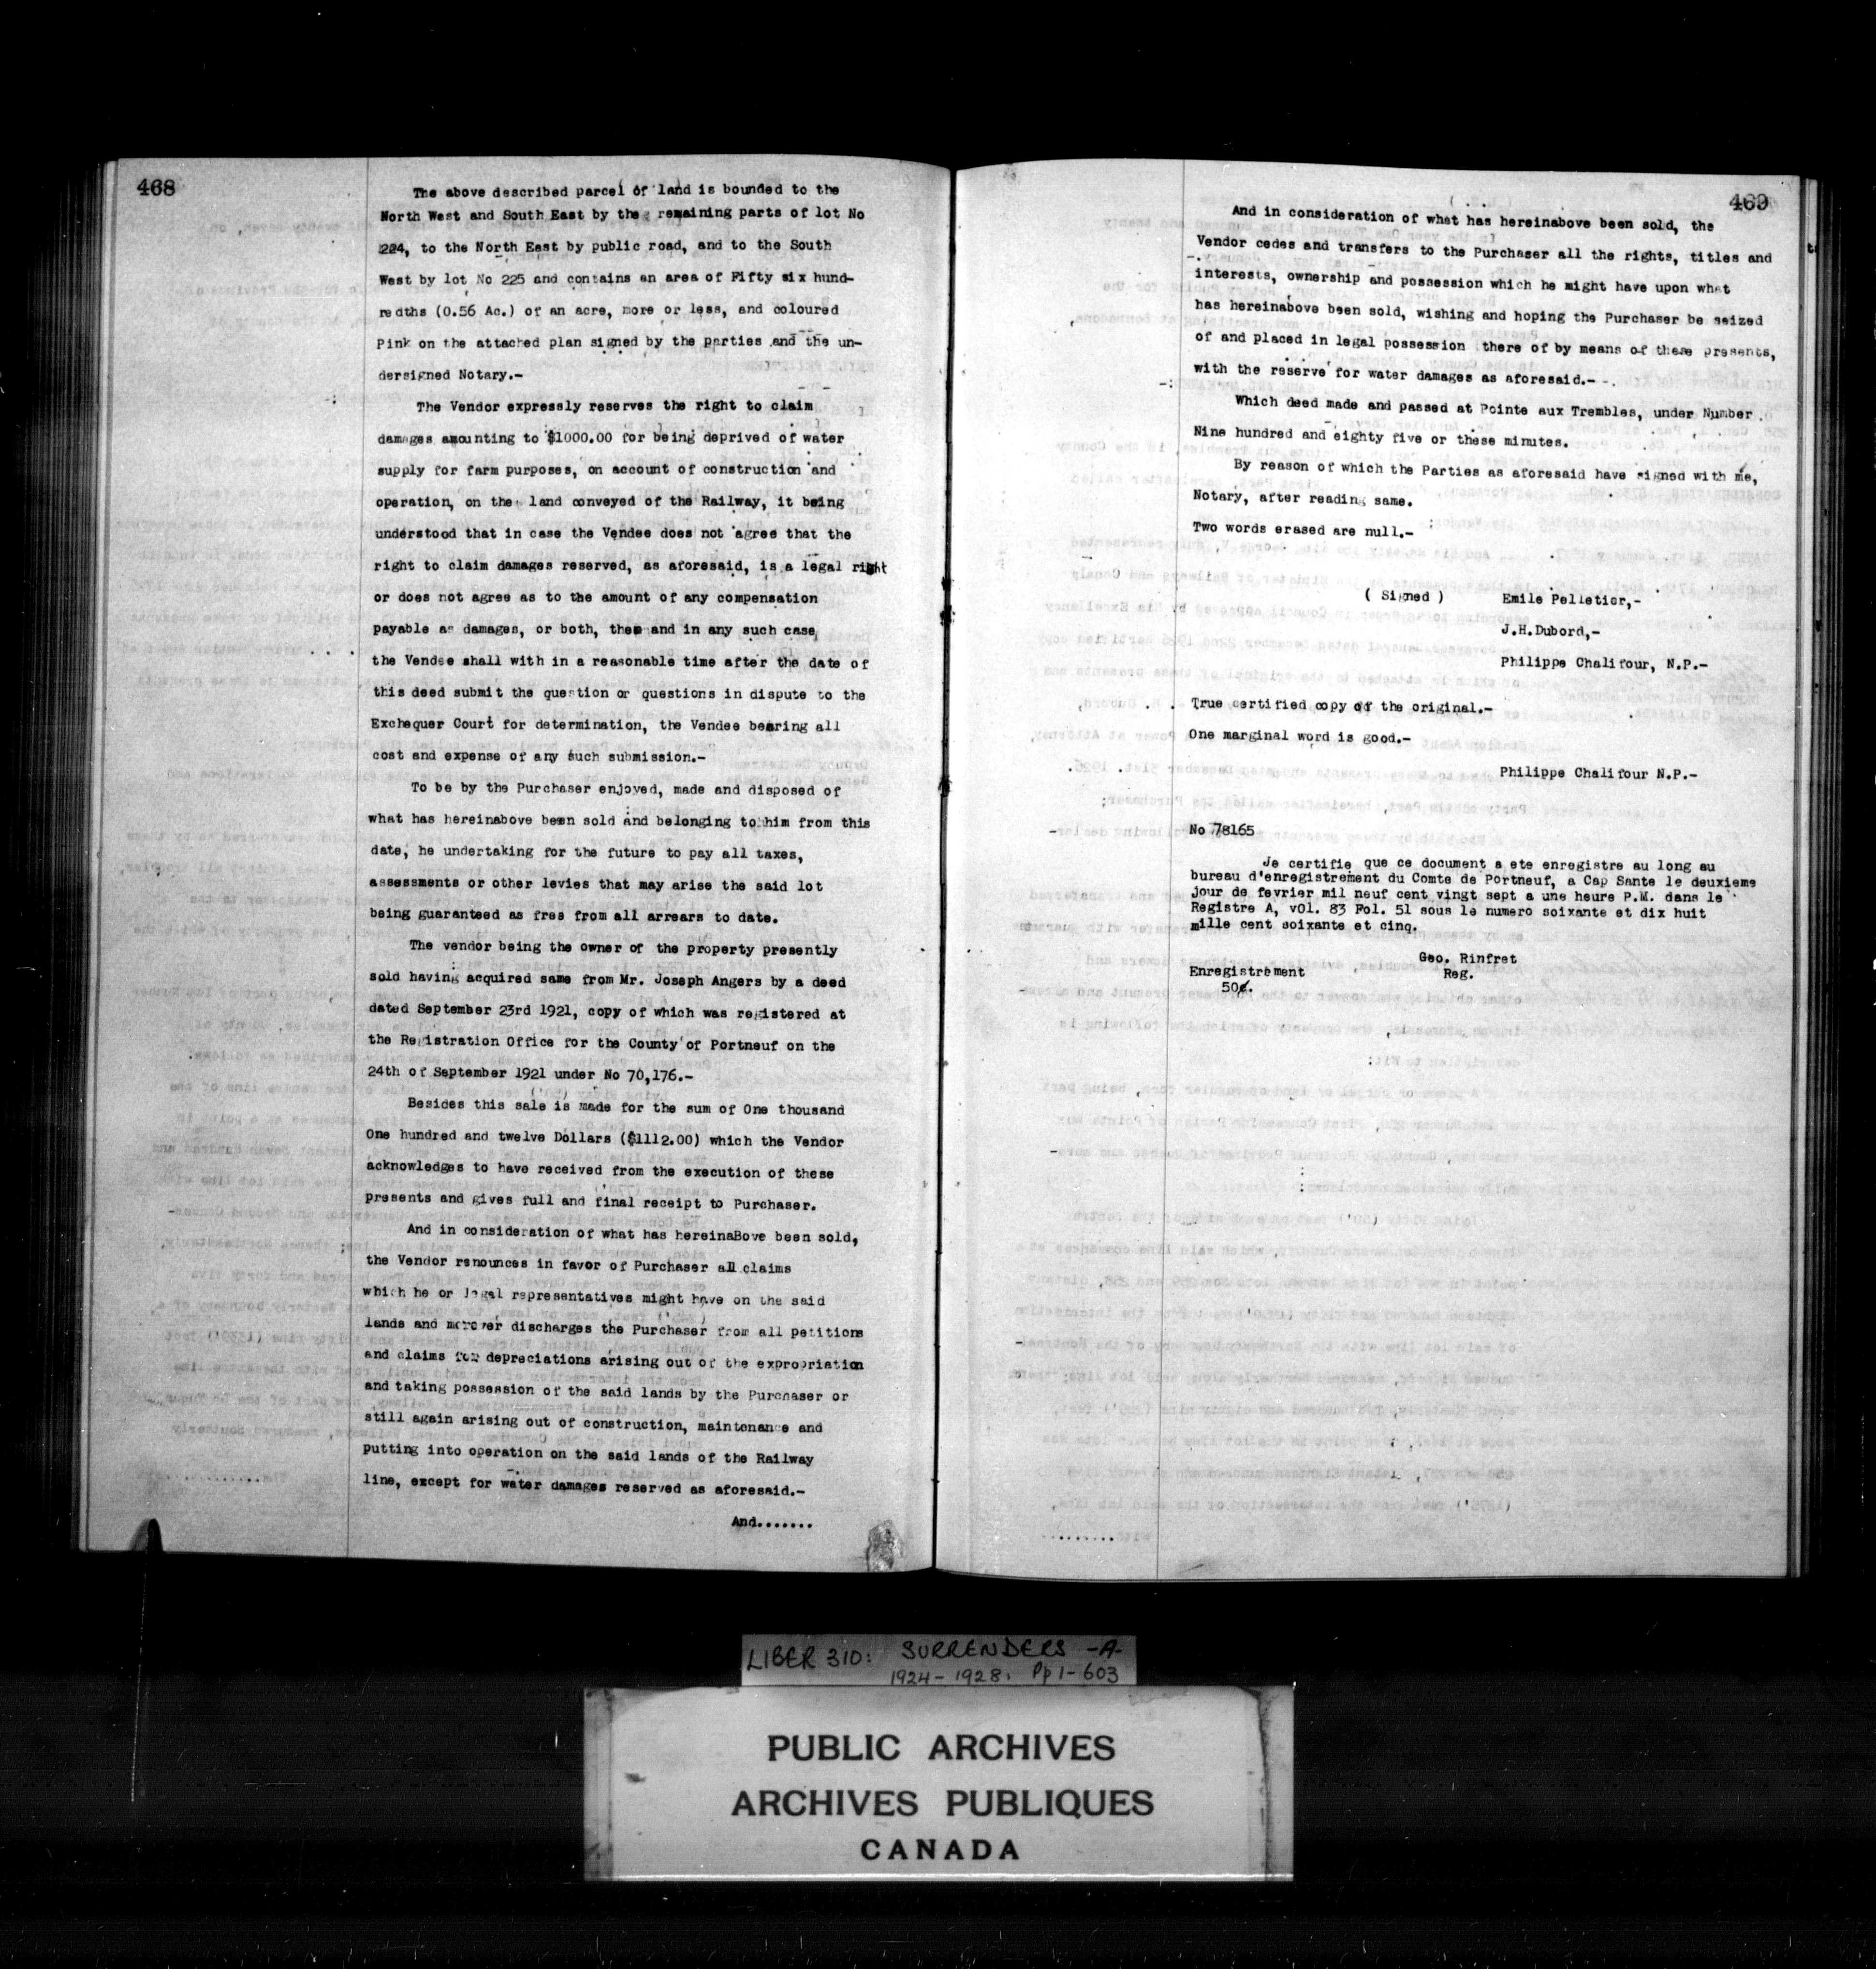 468
The above described parcel of land is bounded to the
North West and South East by the remaining parts of lot No
224, to the North East by public road, and to the South
West by lot No 225 and contains an area of Fifty six hund-
redths (0.56 Ac.) of an acre, more or less, and coloured
Pink on the attached plan signed by the parties and the un-
dersigned Notary.-
The Vendor expressly reserves the right to claim
damages amounting to $1000.00 for being deprived of water
supply for farm purposes, on account of construction and
operation, on the land conveyed of the Railway, it being
understood that in case the Vendee does not agree that the
right to claim damages reserved, as aforesaid, is a legal right
or does not agree as to the amount of any compensation
payable as damages, or both, then and in any such case,
the Vendee shall with in a reasonable time after the date of
this deed submit the question or questions in dispute to the
Exchequer Court for determination, the Vendee bearing all
cost and expense of any such submission.-
To be by the Purchaser enjoyed, made and disposed of
what has hereinabove been sold and belonging to him from this
date, he undertaking for the future to pay all taxes,
assessments or other levies that may arise the said lot
being guaranteed as free from all arrears to date.
The vendor being the owner of the property presently
sold having acquired same from Mr. Joseph Angers by a deed
dated September 23rd 1921, copy of which was registered at
the Registration Office for the County of Portneuf on the
24th of September 1921 under No 70,176.-
Besides this sale is made for the sum of One thousand
One hundred and twelve Dollars ($1112.00) which the Vendor
acknowledges to have received from the execution of these
presents and gives full and final receipt to Purchaser.
And in consideration of what has hereinaBove been sold,
the Vendor renounces in favor of Purchaser all claims
which he or legal representatives might have on the said
lands and discharges the Purchaser from all petitions
and claims for depreciations arising out of the expropriation
and taking possession of the said lands by the Purchaser or
still again arising out of construction, maintenance and
putting into operation on the said lands of the Railway
line, except for water damages reserved as aforesaid.-
And.......
469
And in consideration of what has hereinabove been sold, the
Vendor cedes and transfers to the Purchaser all the rights, titles and
interests, ownership and possession which he might have upon what
has hereinabove been sold, wishing and hoping the Purchaser be seized
of and placed in legal possession there of by means of these presents,
with the reserve for water damages as aforesaid.-
Which deed made and passed at Pointe aux Trembles, under Number
Nine hundred and eighty five or these minutes.
By reason of which the Parties as aforesaid have signed with me,
Notary, after reading same.
Two words erased are null.-
( Signed ) Emile Pelletier,-
J.H.Dubord,-
Philippe Chalifour, N.P.-
True certified copy of the original.-
One marginal word is good.-
Philippe Chalifour N.P.-
No 78165
Je certifie que ce document a ete enregistre au long au
bureau d'enregistrement du Comte de Portneuf, a Cap Sante le deuxieme
jour de fevrier mil neuf cent vingt sept a une heure P.M. dans le
Registre A, vOl. 83 Fol. 51 sous le numero soixante et dix huit
mille cent soixante et cinq.
Geo. Rinfret
Enregistrement Reg.
50¢.
LIBER 310: SURRENDERS -A-
1924-1928. Pp 1-603
PUBLIC ARCHIVES
ARCHIVES PUBLIQUES
CANADA